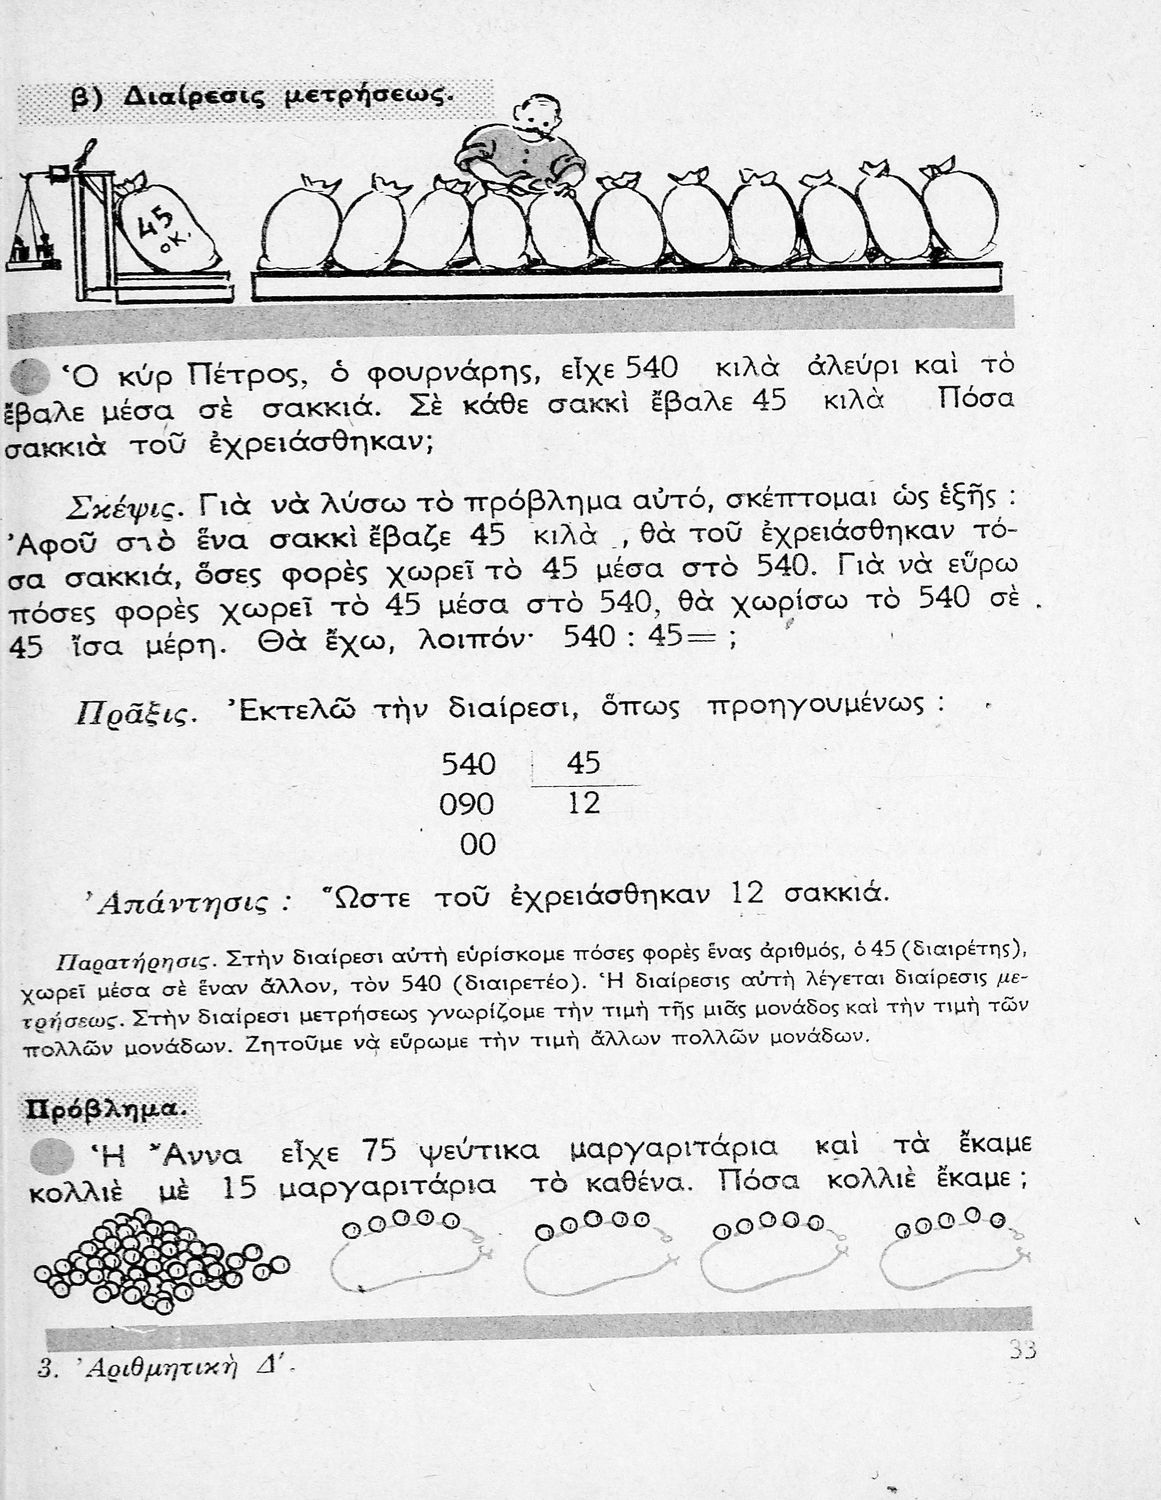 β) Διαίρεσις μετρήσεως.
45
οκ.
Ὁ κύρ Πέτρος, ὁ φουρνάρης, εἶχε 540 κιλὰ ἀλεύρι καὶ τὸ
ἔβαλε μέσα σὲ σακκιά. Σὲ κάθε σακκὶ ἔβαλε 45 κιλὰ Πόσα
σακκιὰ τοῦ ἐχρειάσθηκαν;
Σκέψις. Γιὰ νὰ λύσω τὸ πρόβλημα αὐτό, σκέπτομαι ὡς ἑξῆς :
Ἀφοῦ στὸ ἕνα σακκὶ ἔβαζε 45 κιλὰ , θὰ τοῦ ἐχρειάσθηκαν τό-
σα σακκιά, ὅσες φορὲς χωρεῖ τὸ 45 μέσα στὸ 540. Γιὰ νὰ εὕρω
πόσες φορὲς χωρεῖ τὸ 45 μέσα στὸ 540, θὰ χωρίσω τὸ 540 σὲ
45 ἴσα μέρη. Θὰ ἔχω, λοιπόν· 540 : 45= ;
Πρᾶξις. Ἐκτελῶ τὴν διαίρεσι, ὅπως προηγουμένως :
540 45
090 12
00
Ἀπάντησις : Ὥστε τοῦ ἐχρειάσθηκαν 12 σακκιά.
Παρατήρησις. Στὴν διαίρεσι αὐτὴ εὑρίσκομε πόσες φορὲς ἕνας ἀριθμός, ὁ 45 (διαιρέτης),
χωρεῖ μέσα σὲ ἕναν ἄλλον, τὸν 540 (διαιρετέο). Ἡ διαίρεσις αὐτὴ λέγεται διαίρεσις με-
τρήσεως. Στὴν διαίρεσι μετρήσεως γνωρίζομε τὴν τιμὴ τῆς μιᾶς μονάδος καὶ τὴν τιμὴ τῶν
πολλῶν μονάδων. Ζητοῦμε νὰ εὕρωμε τὴν τιμὴ ἄλλων πολλῶν μονάδων.
Πρόβλημα.
Ἡ Ἄννα εἶχε 75 ψεύτικα μαργαριτάρια καὶ τὰ ἔκαμε
κολλιὲ μὲ 15 μαργαριτάρια τὸ καθένα. Πόσα κολλιὲ ἔκαμε ;
3. Ἀριθμητικὴ Δ΄.
33